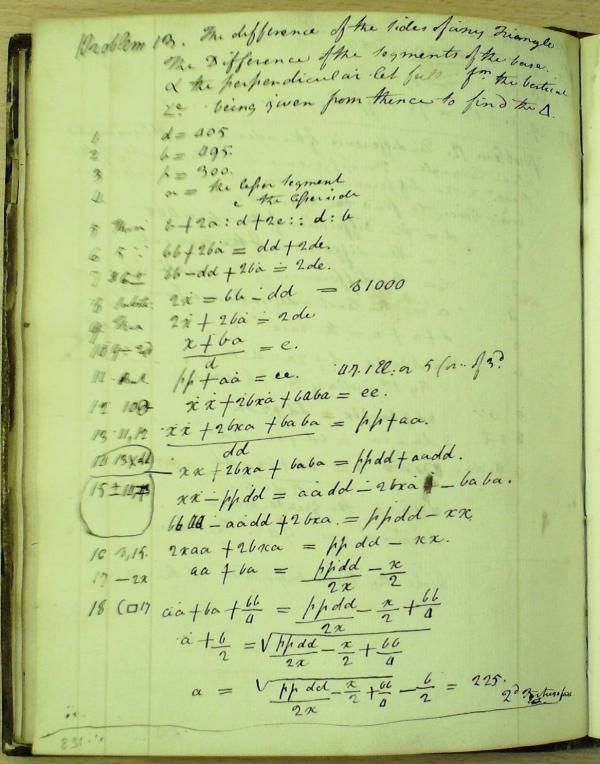 Problem 13. The difference of the sides of any Triangle
The Difference of the segments of the base.
& the perpendicular let fall from the vertical
Le being given from thence to find the Δ.
1 d = 405
2 b = 495.
3 p = 300.
4 a = the lesser segment
e the lesser side
5 Then b + 2a : d + 2e :: d : b
6 5 ∵ bb + 2ba = dd + 2de.
7 bb - dd + 2ba = 2de.
8 2x = bb - dd = 81000
9 Then 2x + 2ba = 2de
10 x + ba / d = e.
11 But pp + aa = ee. 47. 1 El: or 5 Cor. of 3d.
12 xx + 2bxa + baba = ee.
13 11,12 xx + 2bxa + baba / dd = pp + aa.
14 13 x dd xx + 2bxa + baba = ppdd + aadd.
15 ± xx - ppdd = aadd - 2bxa - baba.
bbaa - aadd + 2bxa = ppdd - xx
16 8,15. 2xaa + 2bxa = ppdd - xx.
17 - 2x aa + ba = ppdd / 2x - x / 2
18 C□17 aa + ba + bb / 4 = ppdd / 2x - x / 2 + bb / 4
a + b / 2 = √ ppdd / 2x - x / 2 + bb / 4
a = √ ppdd / 2x - x / 2 + bb / 4 - b / 2 = 225.